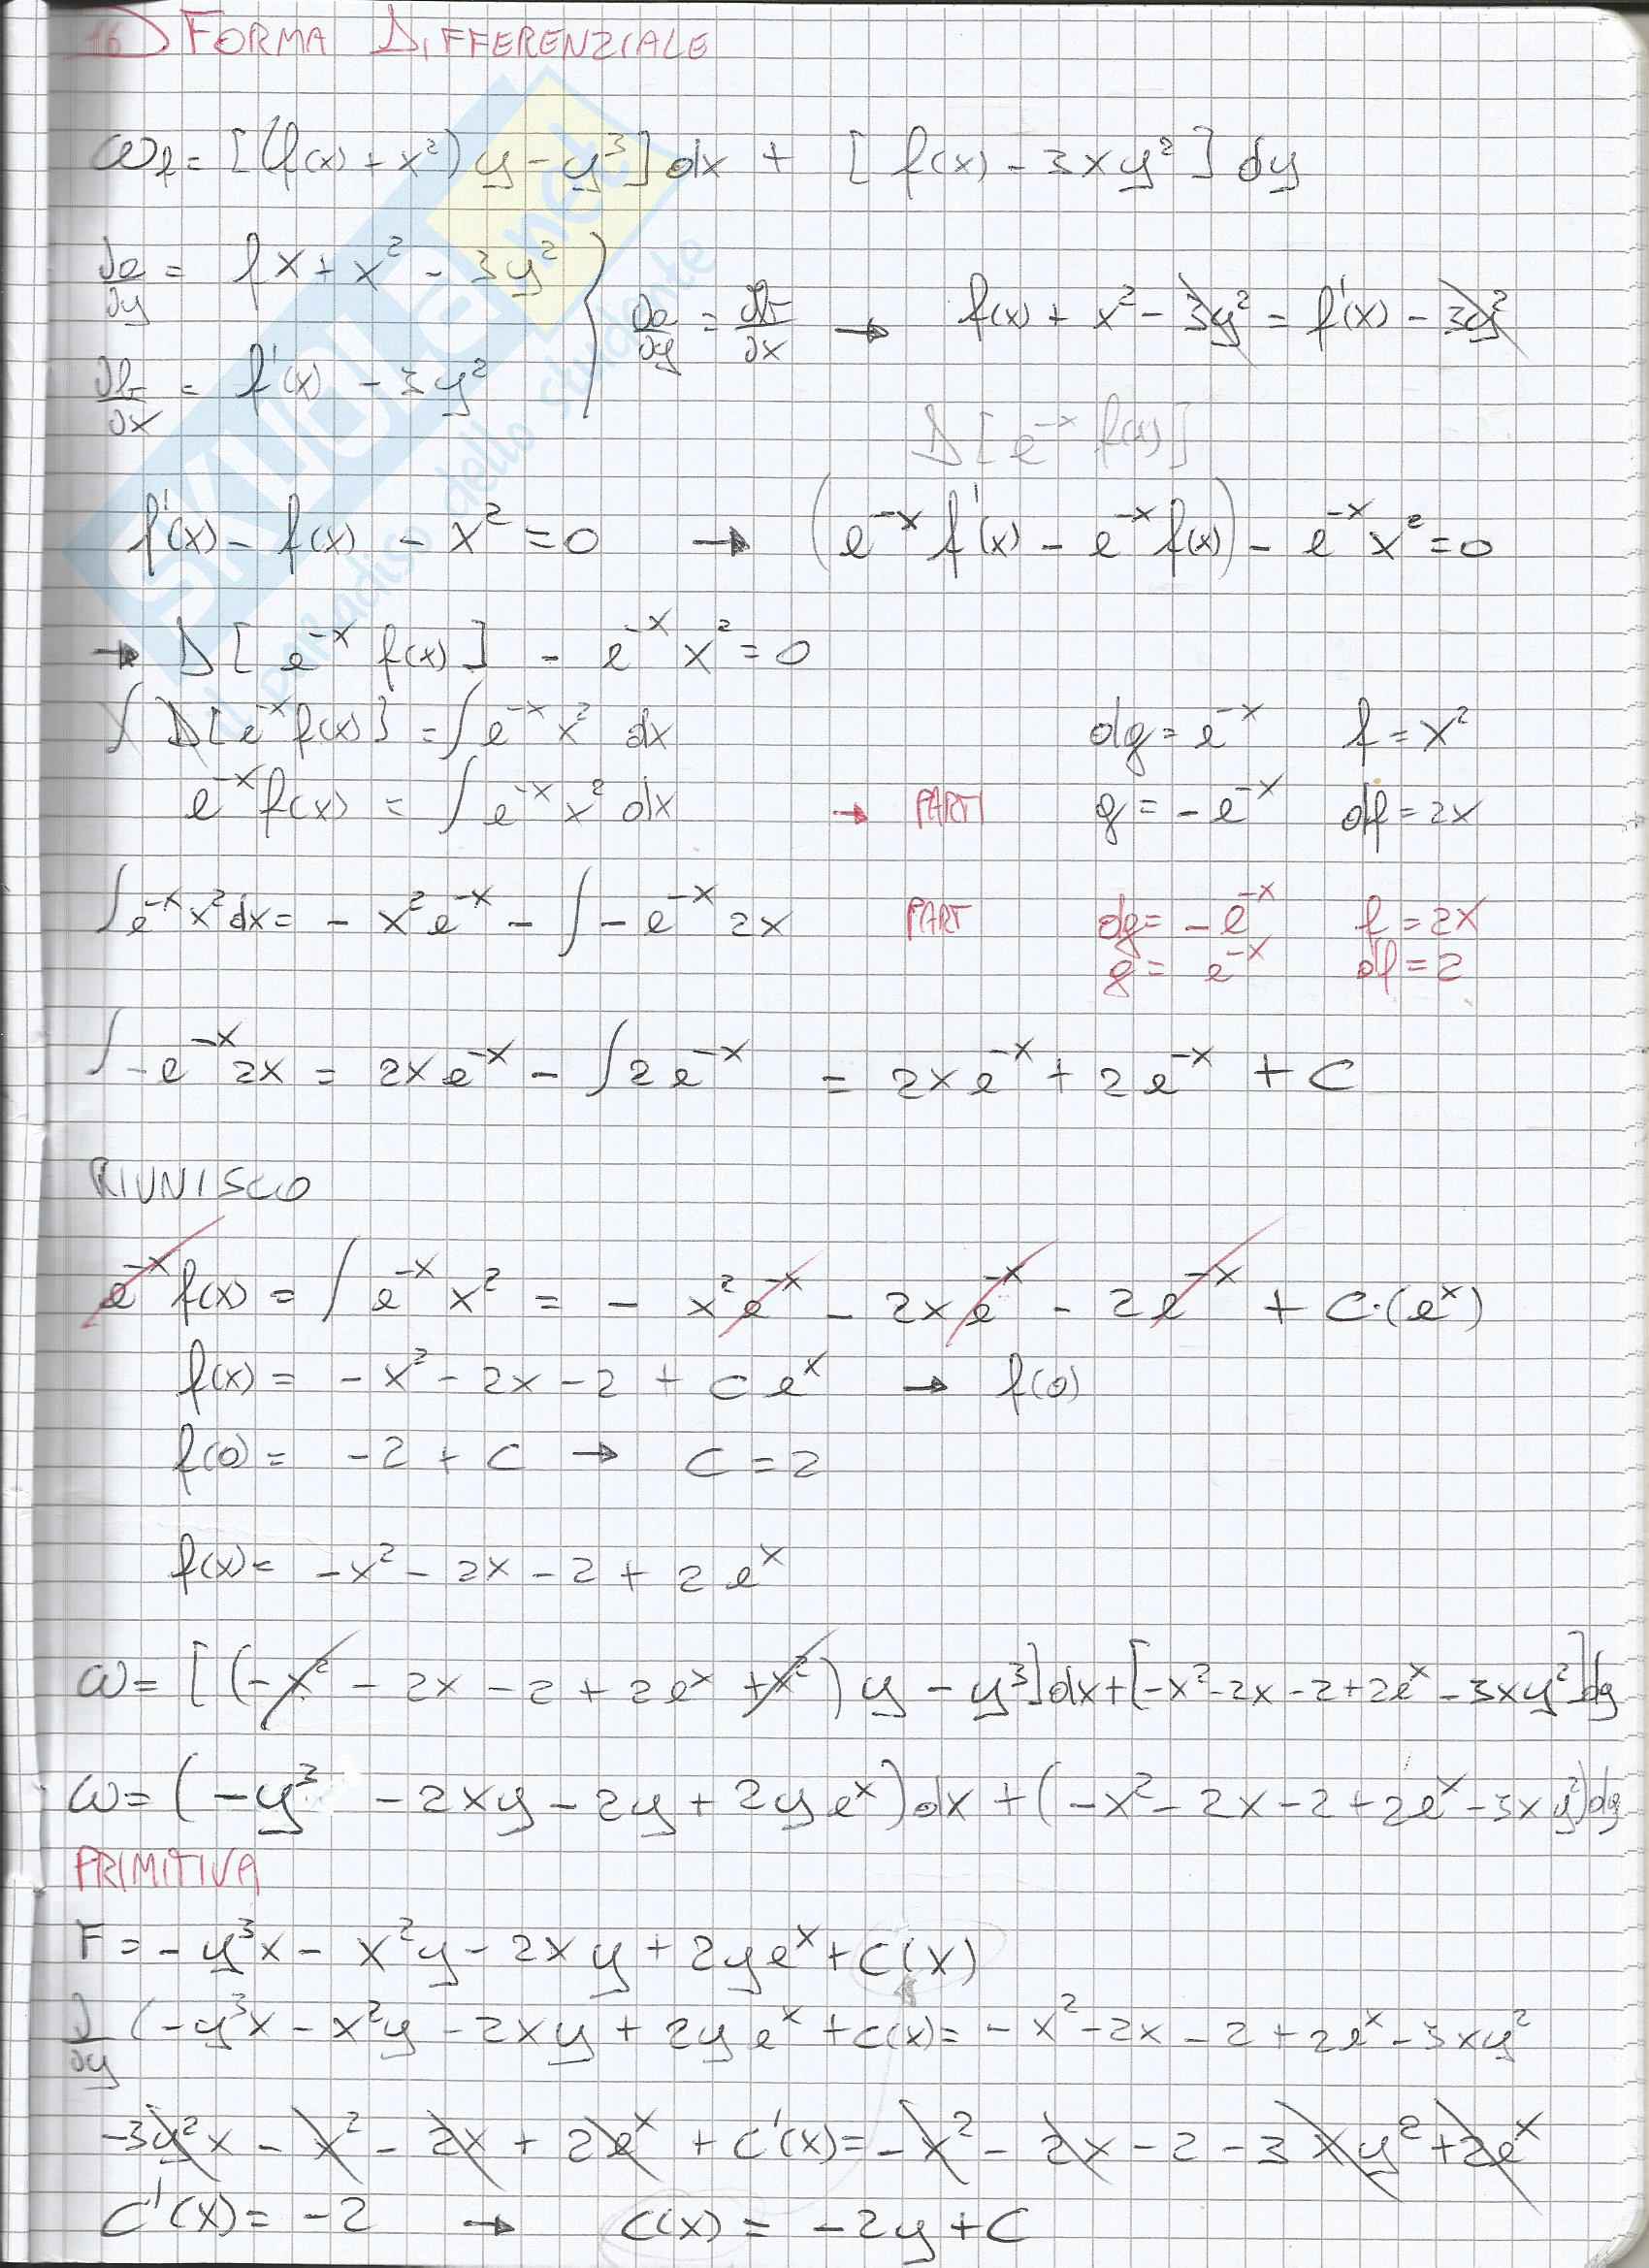 16) FORMA DIFFERENZIALE
ω_f = [(f(x) + x²) y - y³] dx + [f(x) - 3xy²] dy
∂a/∂y = fx + x² - 3y²
∂b/∂x = f'(x) - 3y²
∂a/∂y = ∂b/∂x → f(x) + x² - 3y² = f'(x) - 3y²
D[e^-x f(x)]
f'(x) - f(x) - x² = 0 → (e^-x f'(x) - e^-x f(x)) - e^-x x² = 0
→ D[e^-x f(x)] - e^-x x² = 0
∫ D[e^-x f(x)] = ∫ e^-x x² dx dg = e^-x f = x²
e^-x f(x) = ∫ e^-x x² dx → PARTI g = -e^-x df = 2x
∫ e^-x x² dx = - x² e^-x - ∫ - e^-x 2x PART dg = -e^-x f = 2x
g = e^-x df = 2
∫ -e^-x 2x = 2x e^-x - ∫ 2e^-x = 2x e^-x + 2e^-x + C
RIUNISCO
e^-x f(x) = ∫ e^-x x² = - x² e^-x - 2x e^-x - 2e^-x + C·(e^x)
f(x) = -x² - 2x - 2 + C e^x → f(0)
f(0) = -2 + C → C = 2
f(x) = -x² - 2x - 2 + 2e^x
ω = [(-x² - 2x - 2 + 2e^x + x²) y - y³] dx + [-x² - 2x - 2 + 2e^x - 3xy²] dy
ω = (-y³ - 2xy - 2y + 2y e^x) dx + (-x² - 2x - 2 + 2e^x - 3xy²) dy
PRIMITIVA
F = -y³x - x²y - 2xy + 2y e^x + C(x)
∂/∂y (-y³x - x²y - 2xy + 2y e^x + C(x) = -x² - 2x - 2 + 2e^x - 3xy²
-3y²x - x² - 2x + 2e^x + C'(x) = -x² - 2x - 2 - 3xy² + 2e^x
C'(x) = -2 → C(x) = -2y + C
SKUOLA.net
il paradiso dello studente